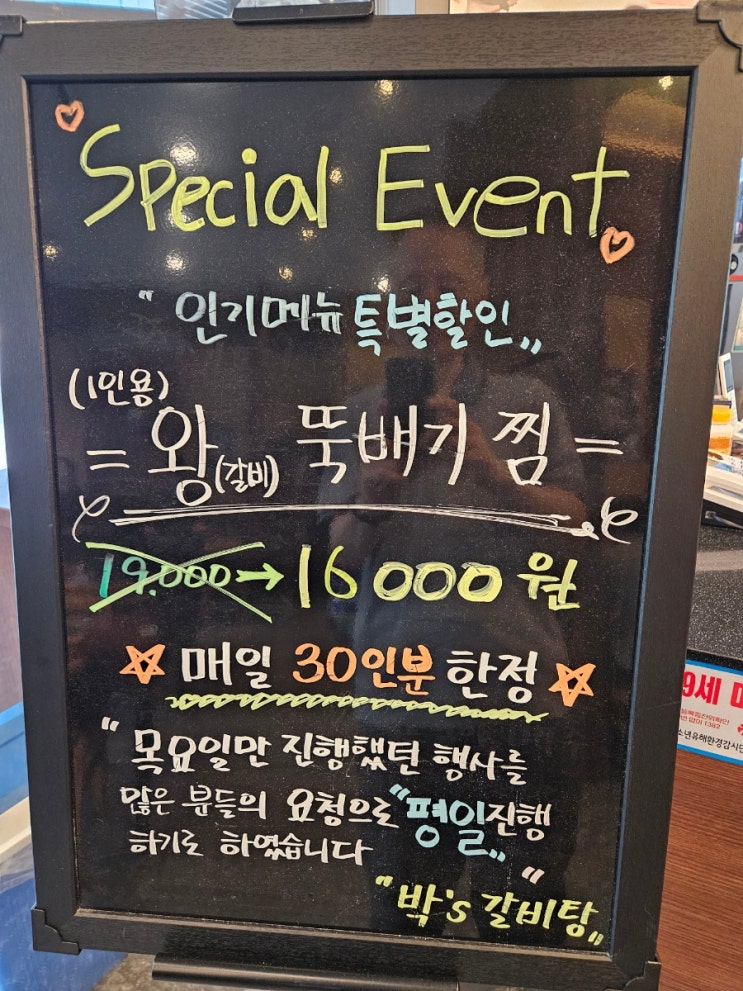 Special Event
" 인기메뉴 특별할인 "
(1인용)
= 왕(갈비) 뚝배기 찜 =
19.000 → 16000 원
☆ 매일 30인분 한정 ☆
" 목요일만 진행했던 행사를
많은 분들의 요청으로 "평일"진행
하기로 하였습니다 "
"박's 갈비탕"
9세
1382
소년유해환경감시단